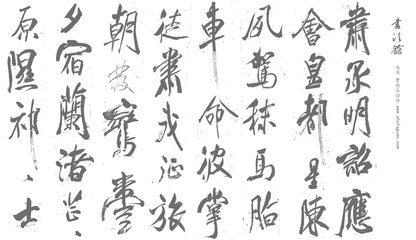 肅承明詔應
會皇都星陳
夙駕秣馬脂
車命彼掌
徒肅我征旅
朝發鸞臺
夕宿蘭渚芒〻
原隰祁〻士